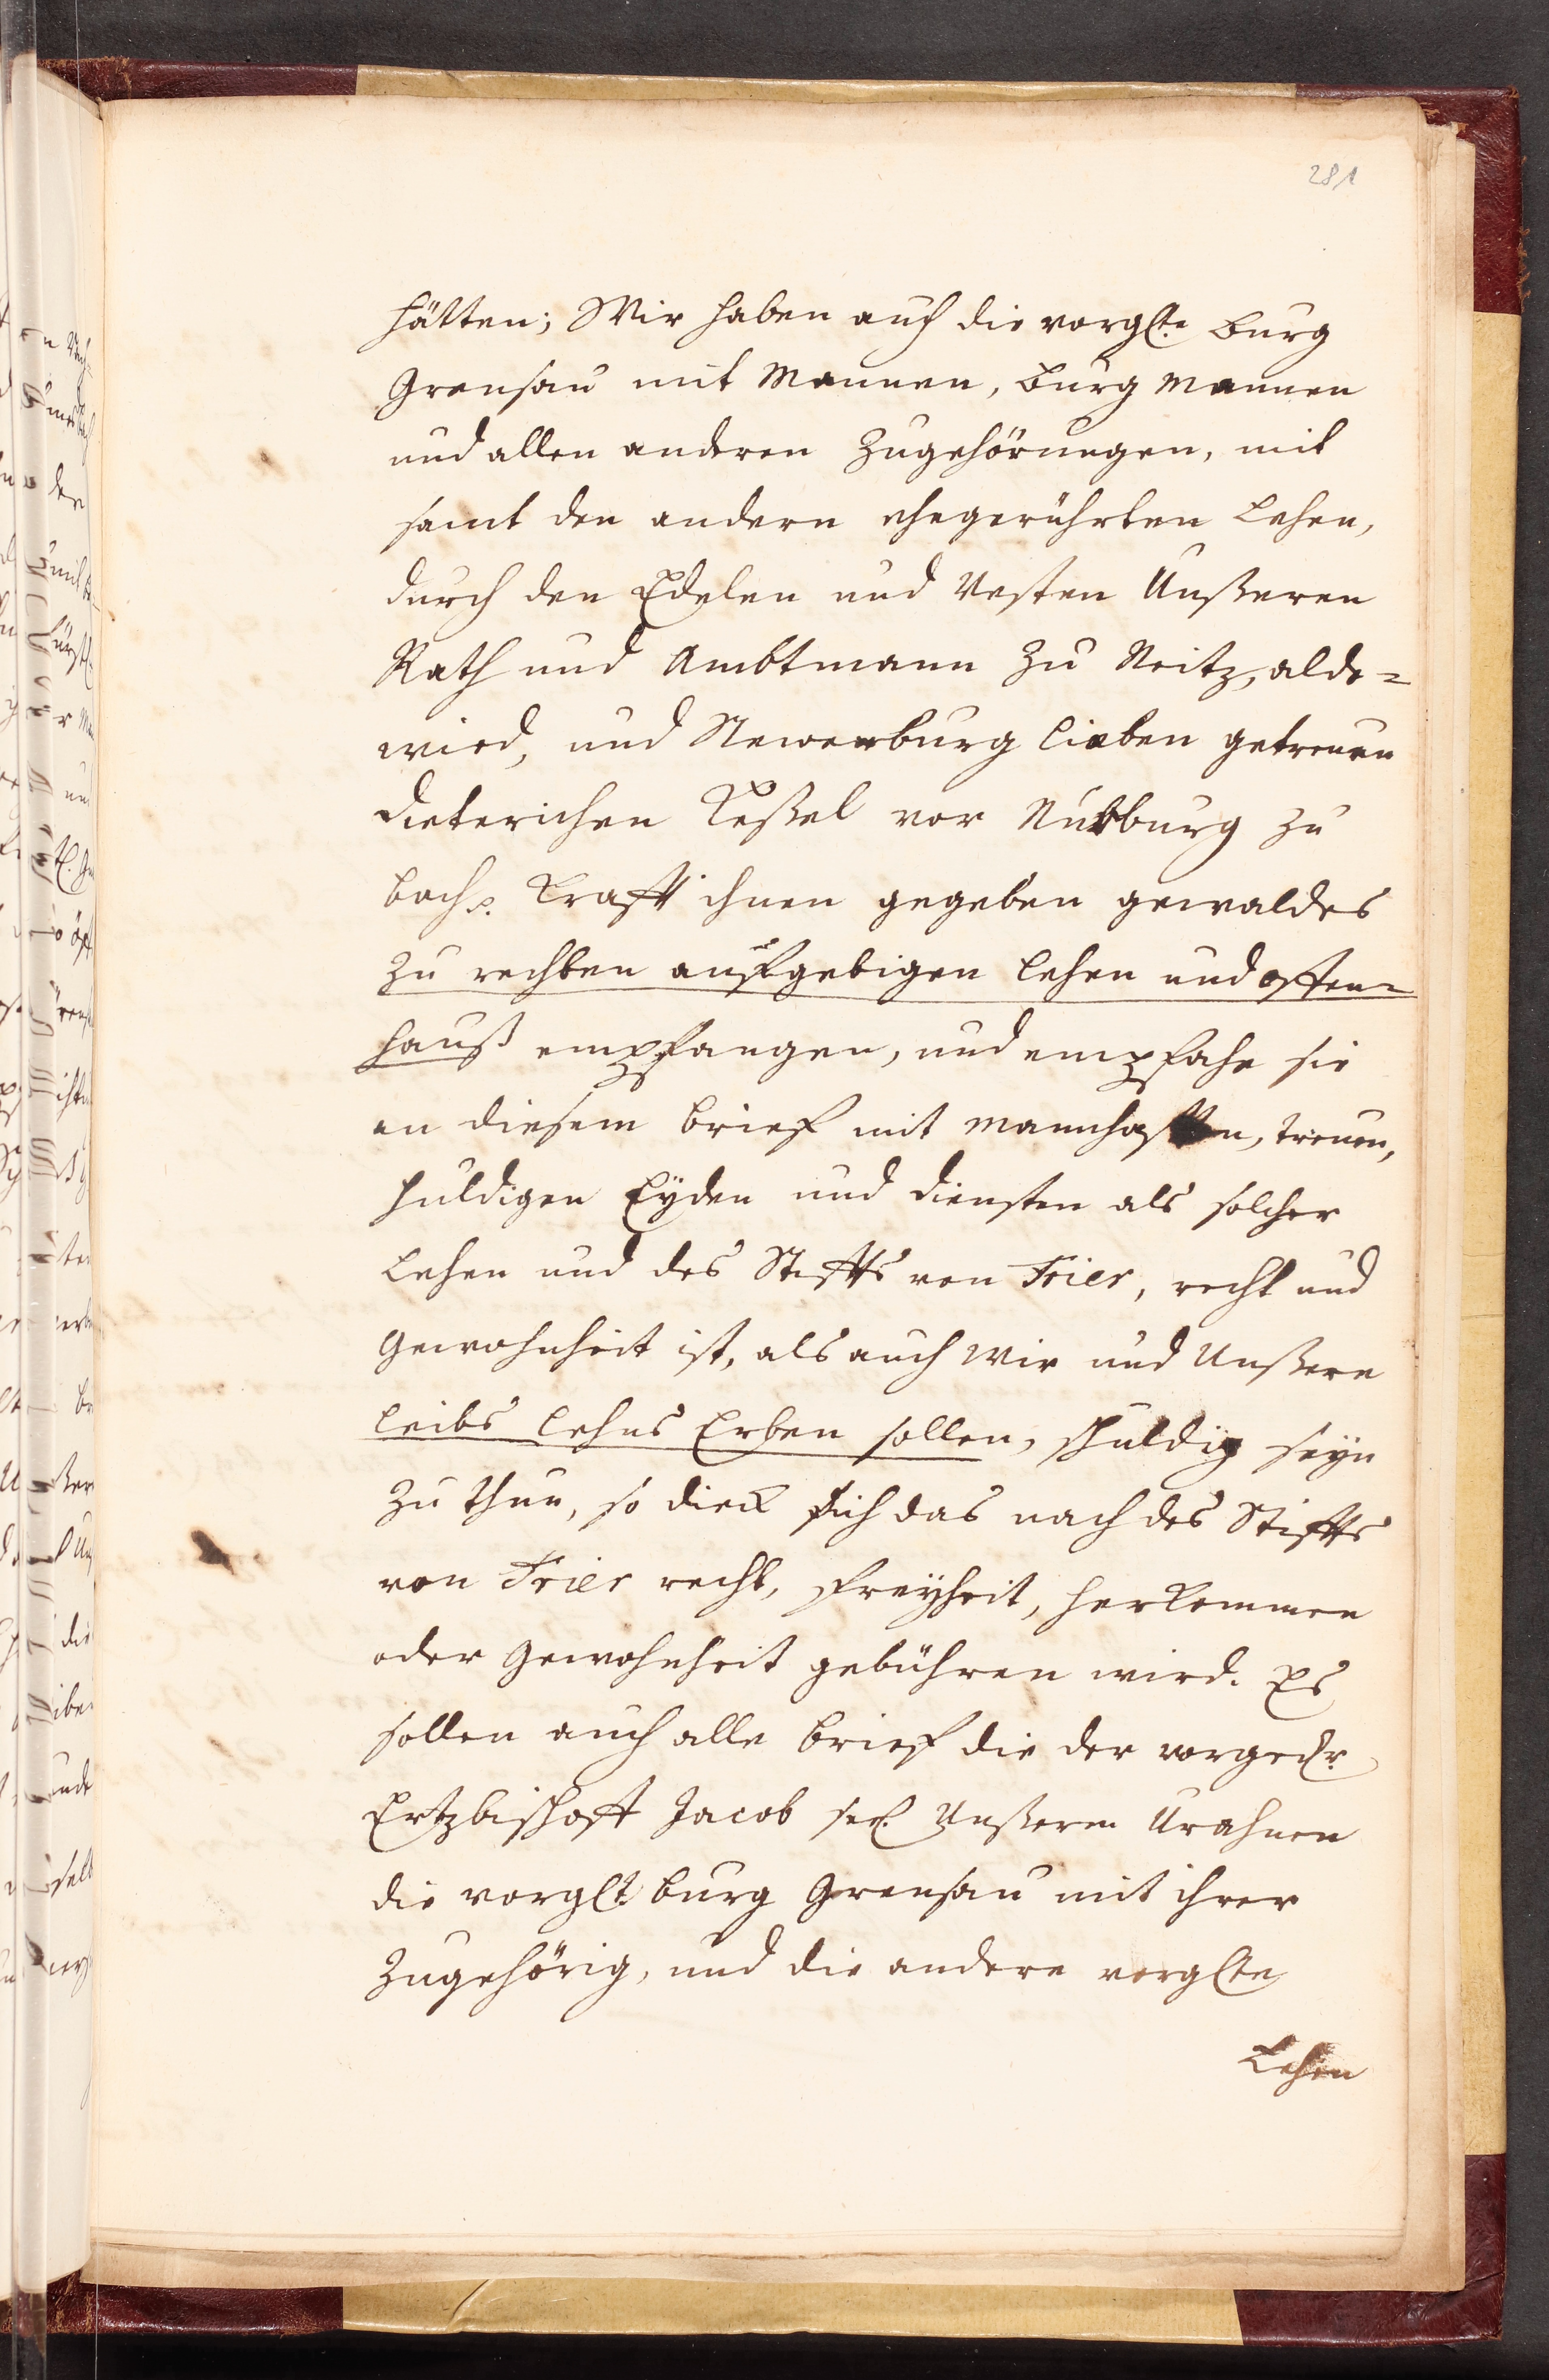 281
hätten; Wir haben auch die vorglte burg
Grensau mit Mannen, burg Mannen
und allen anderen Zugehörungen, mit
samt den andern ehegerührten Lehen,
durch den Edelen und Vesten Unßeren
Rath und Ambtmann zu Neitz, alde-
wied, und Newerburg lieben getreuen
Dieterichen Keßel vor Nurburg zu
bach p. Krafft ihnen gegeben gewaldes
zu rechten aufgebigen Lehen und offen-
hauß empfangen, und empfahe sie
an diesem brief mit mannhafften, treuen,
huldigen Eyden und diensten als solcher
Lehen und des Stiffts von Trier, recht und
Gewohnheit ist, als auch Wir und Unßere
Leibs Lehns Erben sollen, schuldig seyn
zu thun, so dick sich das nach des Stiffts
von Trier recht, Freyheit, herkommen
oder Gewohnheit gebühren wird. Es
sollen auch alle brief die der vorgedr.
Ertzbischoff Jacob seel. Unßerm Urahnen
die vorglt burg Grensau mit ihrer
Zugehörig, und die andere vorglte
Lehen